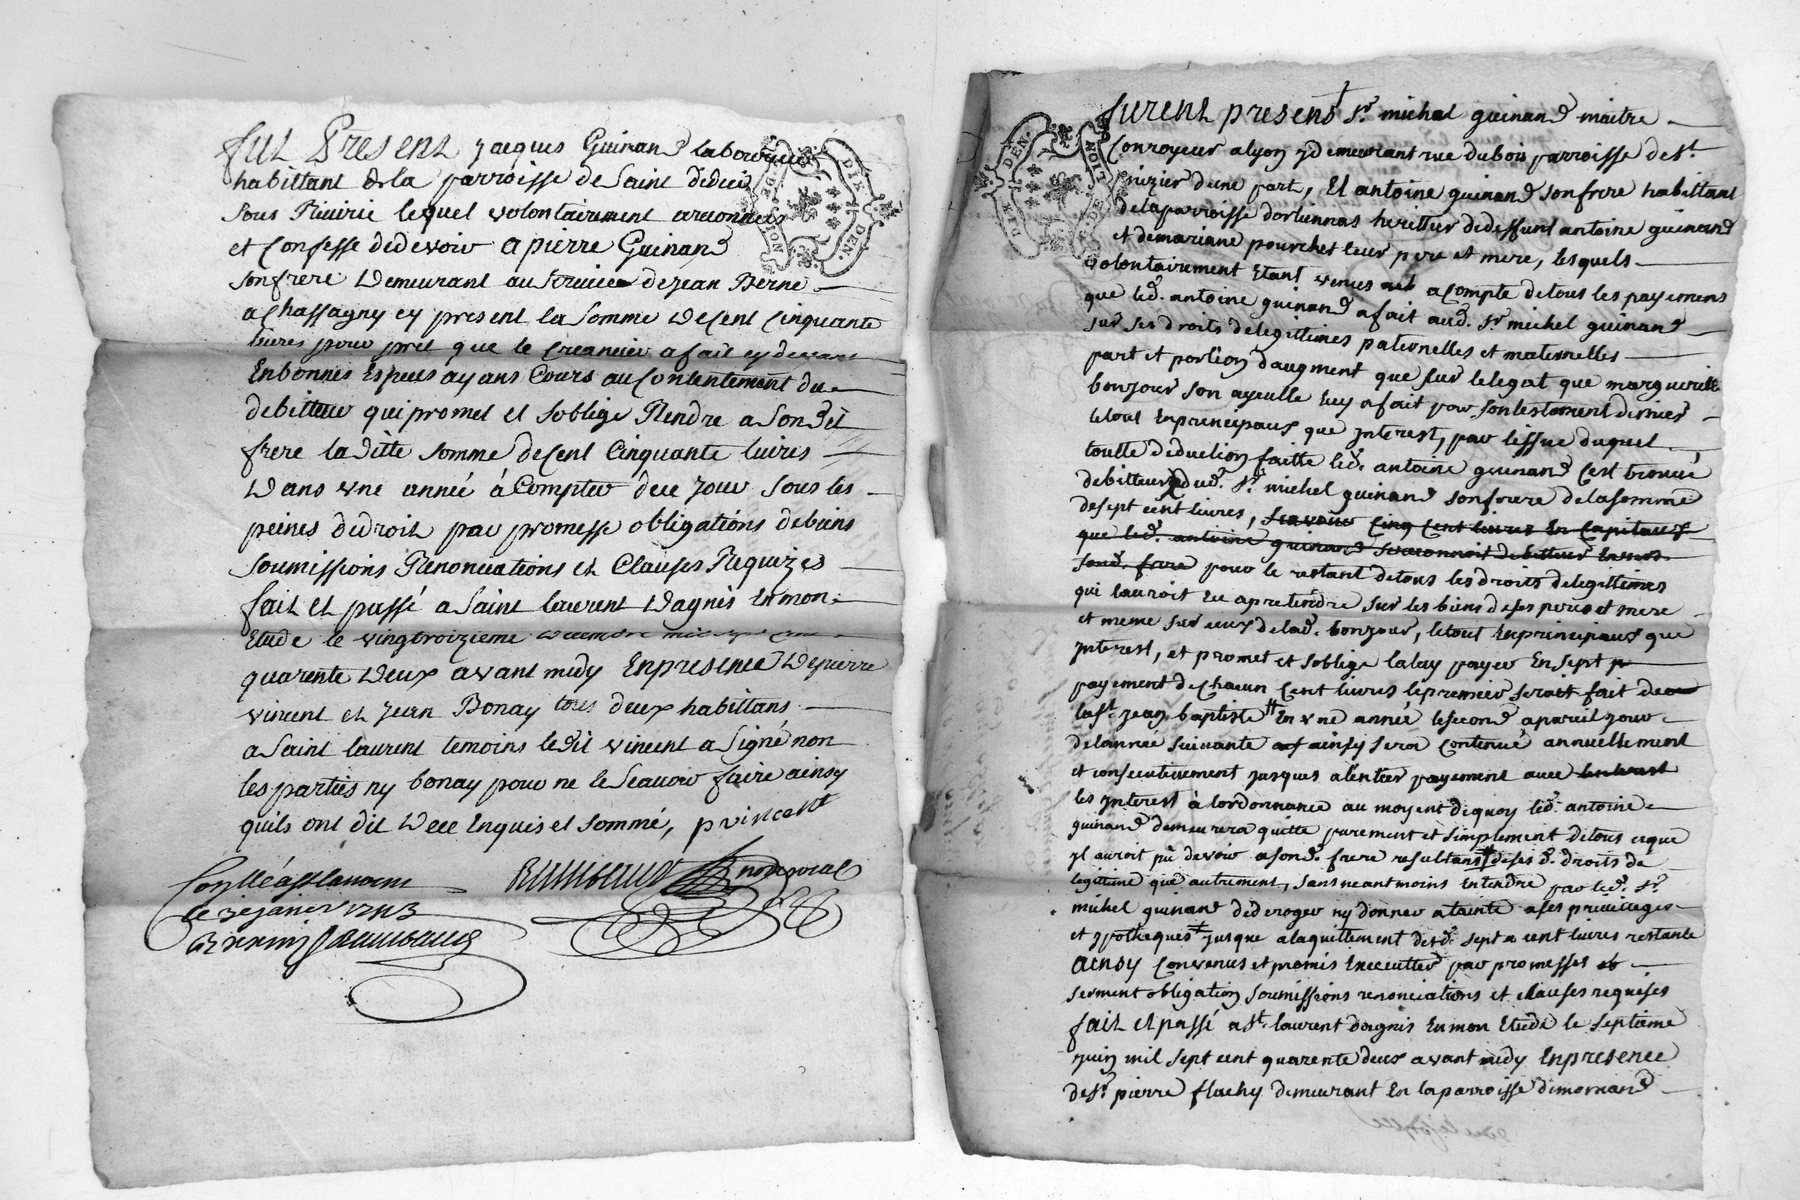 fut Present jacques Guinand laboureur
habittant de la parroisse de Saint didier
sous Riuirie lequel volontairement areconnu
et Confesse dedevoir a pierre Guinand
son frere demeurant au seruice de jean Berne
a Chassagny cy present la somme de Cent Cinquante
liures pour prét que le Creancier a fait cy devant
En bonnes Especes ayans Cours au Contentement du
debitteur qui promet et soblige Rendre a son dit
frere la ditte somme de Cent Cinquante liures
dans vne année á Compter de ce jour sous les
peines de droit par promesse obligations de biens
soumissions Renonciations et Clauses Requizes
fait et passé a Saint laurent dagnis en mon
Etude le vingtroizieme decembre mil sept cent
quarente deux avant midy En presence de pierre
vincent et jean Bonay tous deux habittans
a Saint laurent temoins ledit vincent a signé non
les parties ny bonay pour ne le scauoir faire ainsy
quils ont dit de ce Enquis et sommé, p vincent
notroyal
le 3e janier 1743
DIX DEN.
DE LION
furent presens sr. michel guinand maitre
Conroyeur a lyon y demeurant rue du bois parroisse de st.
nizier dune part, Et antoine guinand son frere habittant
de la parroisse dorlienas heritier de deffunt antoine guinand
et de mariane pourchet leur pere et mere, lesquels
volontairement Etant venus a compte de tous les payemens
que led. antoine guinand a fait aud. sr michel guinand
sur ses droits de legittimes paternelles et maternelles
part et portion daugment que sur le legat que margueritte
bonjour son ayeulle luy a fait par son testament dernier
le tout En principaux que jnterest, par lissue duquel
toutte deduction faitte led. antoine guinand cest trouué
debitteur dud. sr. michel guinand son frere de la somme
de sept cent liures, scavoir Cinq Cent liures En Capitaux
que led. antoine guinand se reconnoit debitteur Enuers
sond. frere pour le restant de tous les droits de legittimes
qui lauroit Eu a pretendre sur les biens de ses pere et mere
et meme sur ceux de lad. bonjour, le tout En principaux que
jnterest, et promet et soblige la luy payer En sept
payement de Chacun Cent liures le premier serait fait
la st. jean baptiste En vne année le second a pareil jour
de lannée suivante et ainsy sera Continué annuellement
et consecutivement jusques a lentier payement avec
les jnterest à lordonnance au moyent de quoy led. antoine
guinand demeurera quitte purement et simplement de tous ce que
jl auroit pû devoir a sond. frere resultans de ses d. droits de
legittime que autrement, sans neantmoins Entendre par led. sr.
michel guinand dederoger ny donner atainte a ses privileges
et ypotheques jusque a laquittement desd. sept cent liures restante
ainsy Convenus et promis Executter par promesses
serment obligation soumissions renonciations et clauses requises
fait et passé a st. laurent dagnis En mon Etude le septieme
juin mil sept cent quarente deux avant midy En presence
de sr. pierre flachy demeurant En la parroisse de mornand
DIX DEN.
DE LION